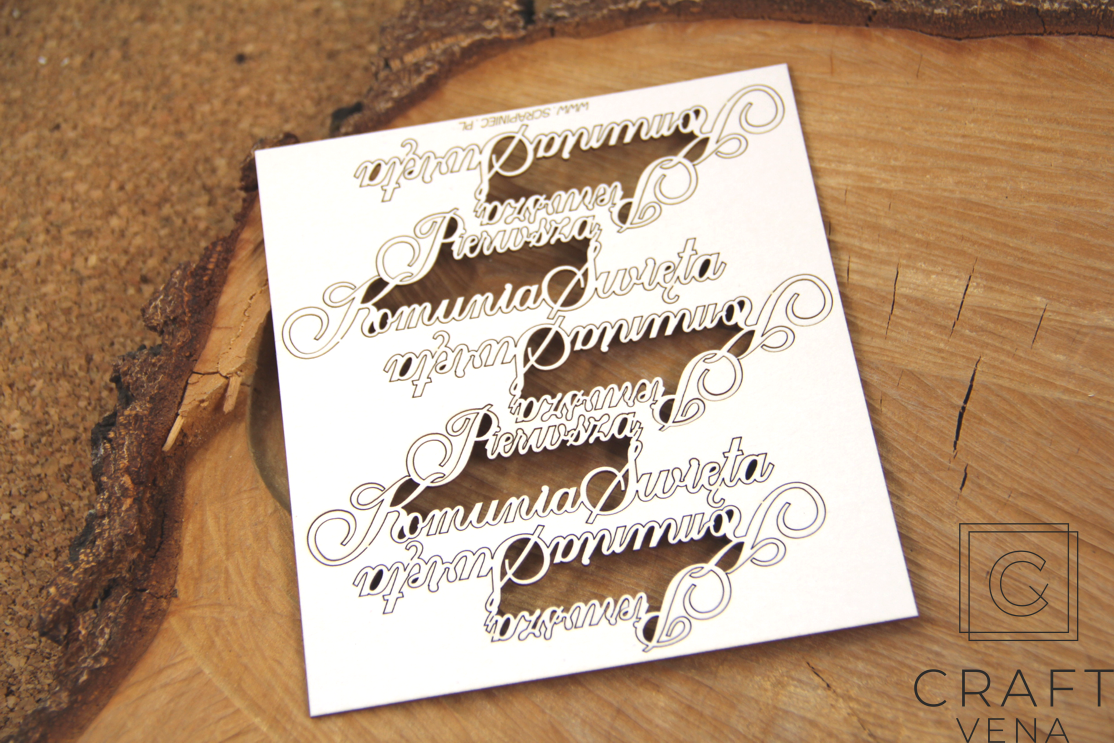 WWW.SCRAPINIEC.PL
Komunia Święta
Pierwsza
Pierwsza
Komunia Święta
Komunia Święta
Pierwsza
Pierwsza
Komunia Święta
Komunia Święta
Pierwsza
CRAFT
VENA